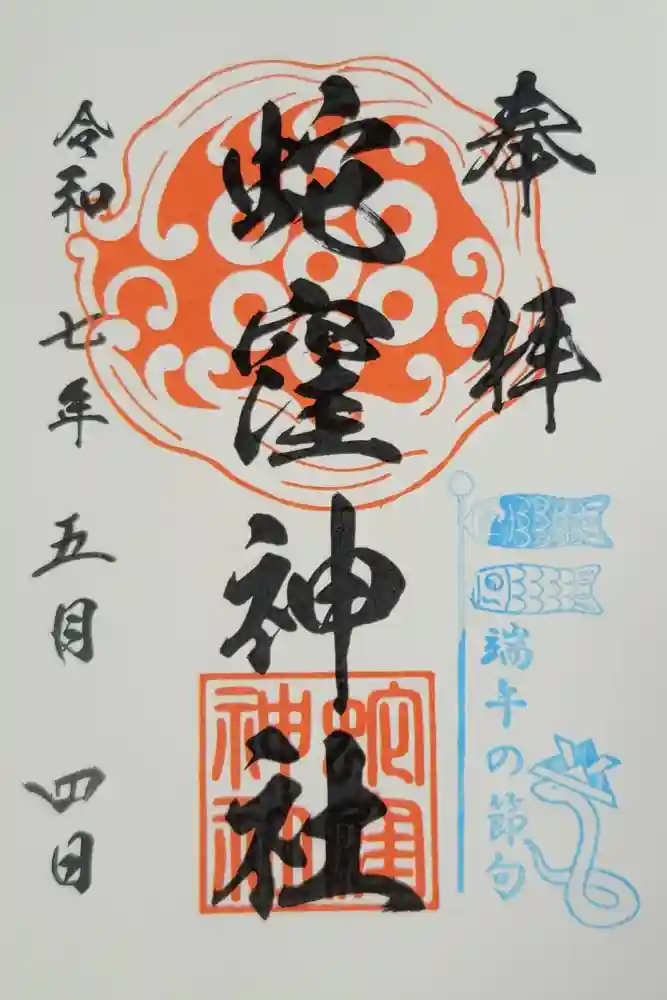 奉拝
蛇窪神社
蛇窪神社
端午の節句
令和七年五月四日